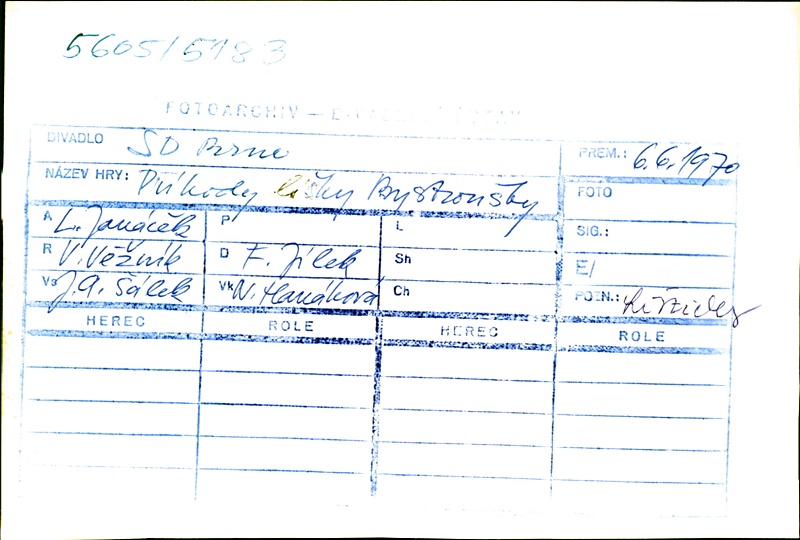 5605/5183
FOTOARCHIV —
DIVADLO SD Brno
PREM.: 6.6.1970
NÁZEV HRY: Příhody lišky Bystroušky
FOTO
A L. Janáček P L SIG.:
R V. Věžník D F. Jílek Sh E/
Vs J. A. Šálek Vk N. Hanáková Ch POZN.:
HEREC ROLE HEREC ROLE